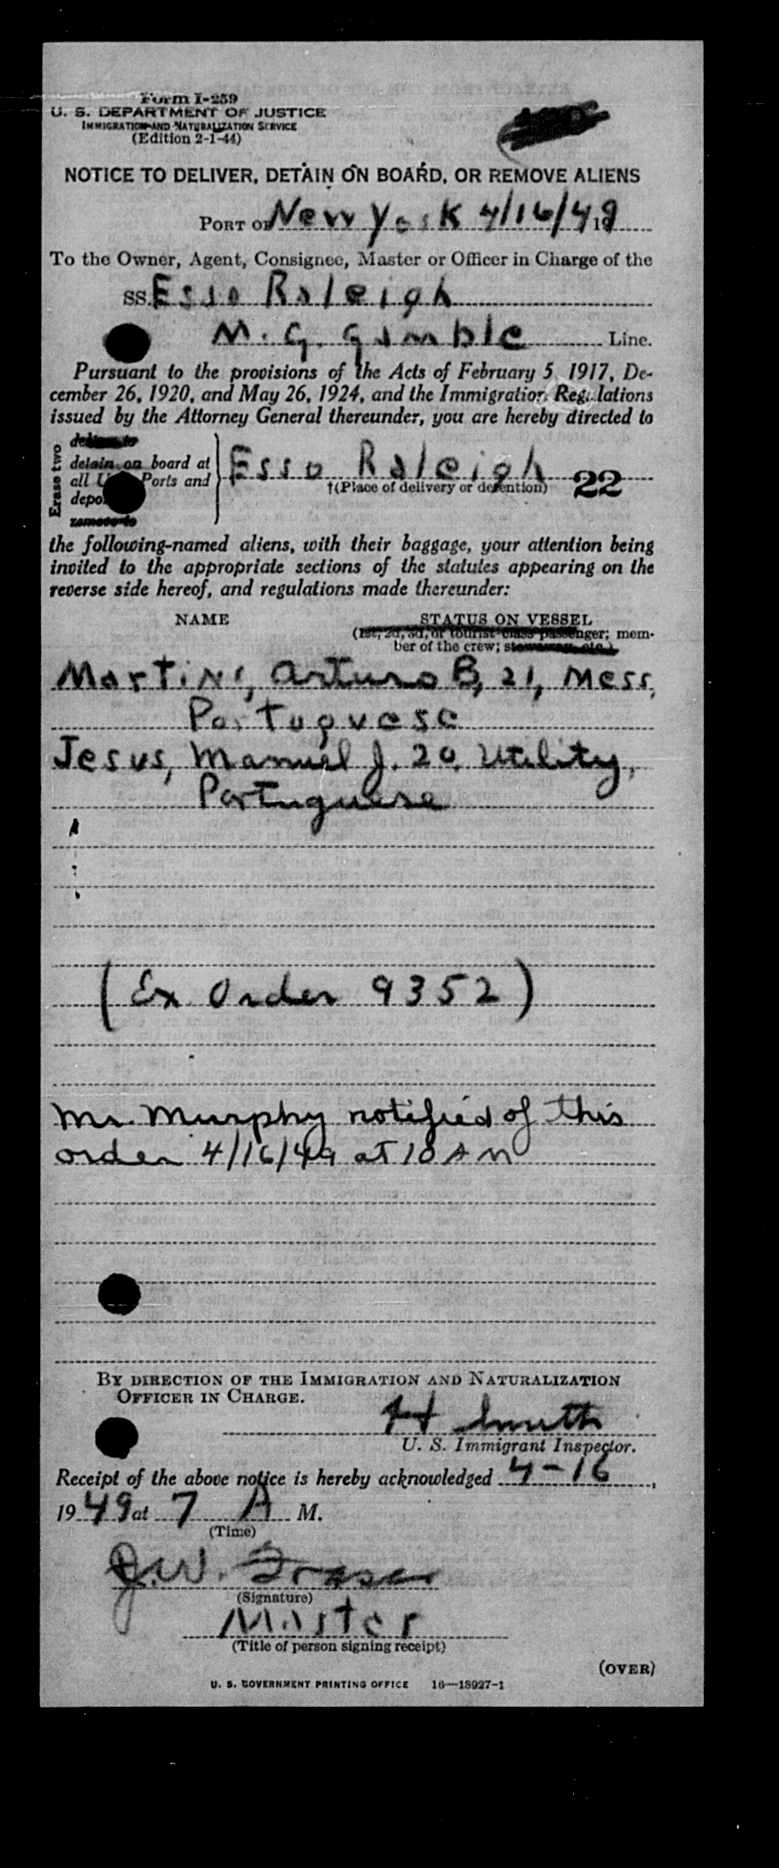 Form I-259
U. S. DEPARTMENT OF JUSTICE
IMMIGRATION AND NATURALIZATION SERVICE
(Edition 2-1-44)
NOTICE TO DELIVER, DETAIN ON BOARD, OR REMOVE ALIENS
PORT OF New York 4/16/49 19
To the Owner, Agent, Consignee, Master or Officer in Charge of the
SS. Esso Raleigh
M. G. Gamble Line.
Pursuant to the provisions of the Acts of February 5, 1917, De-
cember 26, 1920, and May 26, 1924, and the Immigration Regulations
issued by the Attorney General thereunder, you are hereby directed to
Erase two
deliver to
detain on board at
all U Ports and
depo
remove to
Esso Raleigh
†(Place of delivery or detention) 22
the following-named aliens, with their baggage, your attention being
invited to the appropriate sections of the statutes appearing on the
reverse side hereof, and regulations made thereunder:
NAME STATUS ON VESSEL
(1st, 2d, 3d, or tourist class passenger; mem-
ber of the crew; stowaway, etc.)
Martins, Arturo B, 21, Mess,
Portuguese
Jesus, Manuel J. 20, Utility,
Portuguese
(Ex Order 9352)
Mr. Murphy notified of this
order 4/16/49 at 10 AM
BY DIRECTION OF THE IMMIGRATION AND NATURALIZATION
OFFICER IN CHARGE.
H Smith
U. S. Immigrant Inspector.
Receipt of the above notice is hereby acknowledged 4-16,
19 49 at 7 A M.
(Time)
J.W. Fraser
(Signature)
Master
(Title of person signing receipt)
(OVER)
U. S. GOVERNMENT PRINTING OFFICE 16—18927-1